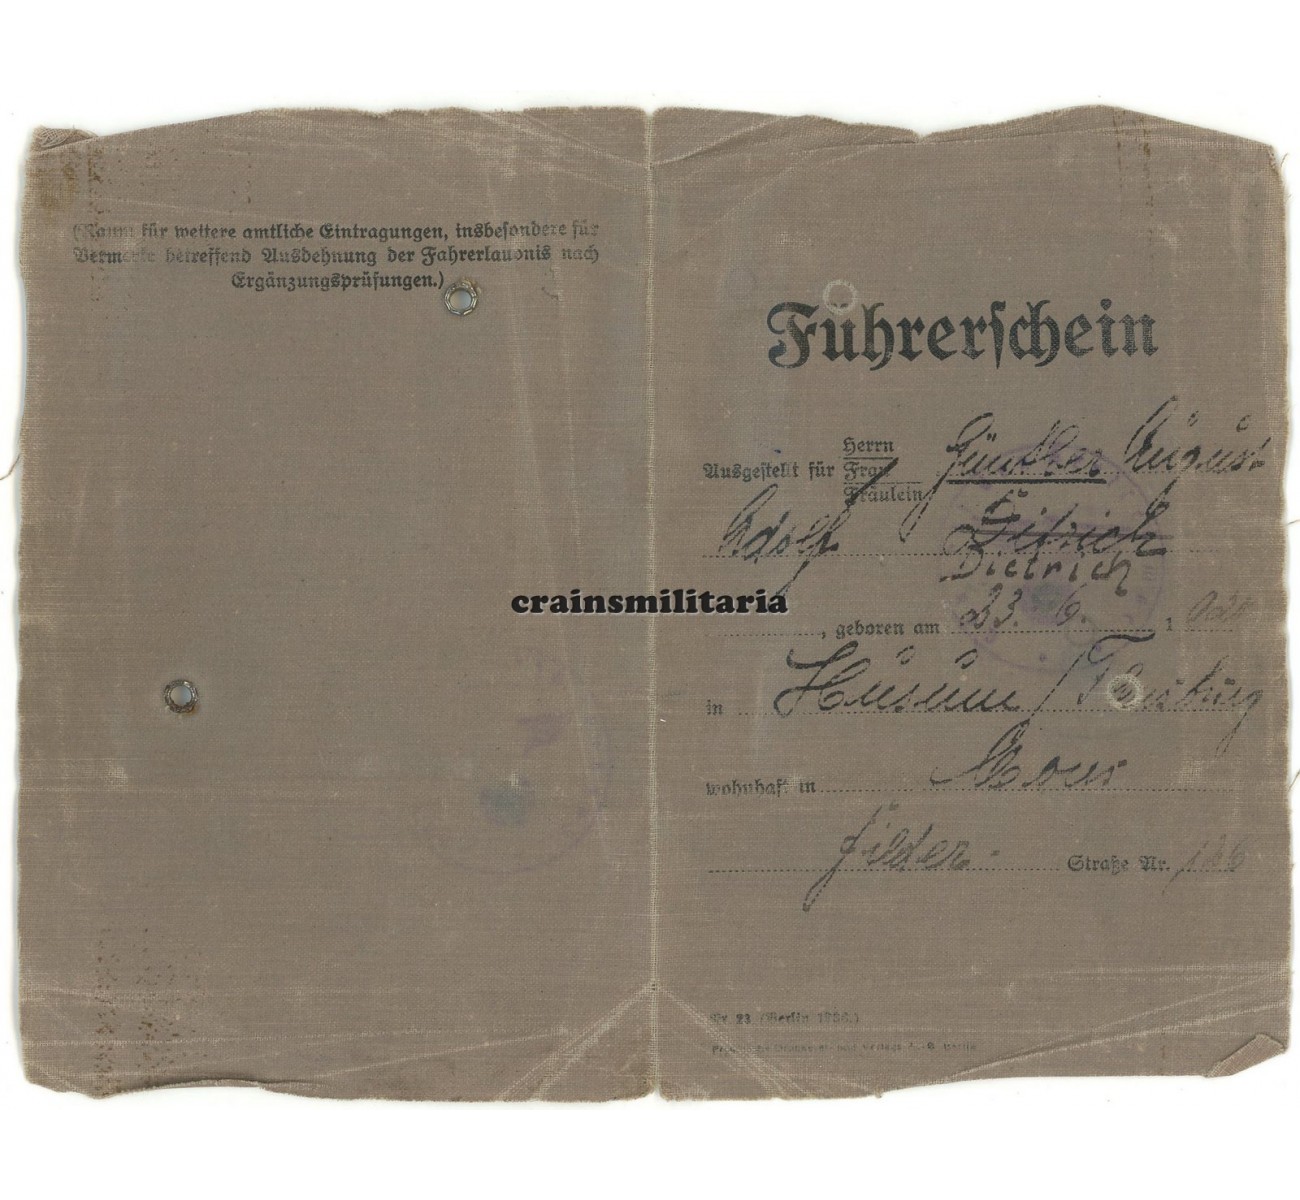 (Raum für weitere amtliche Eintragungen, insbesondere für
Vermerke betreffend Ausdehnung der Fahrerlaubnis nach
Ergänzungsprüfungen.)
Führerschein
Herrn
Ausgestellt für Frau Günther August
Fräulein
Adolf Ditrich
Dietrich
crainsmilitaria
, geboren am 23. 6. 1920
in Husum / Flensburg
wohnhaft in Moers
Filder- Straße Nr. 126
Nr. 23 (Berlin 1936.)